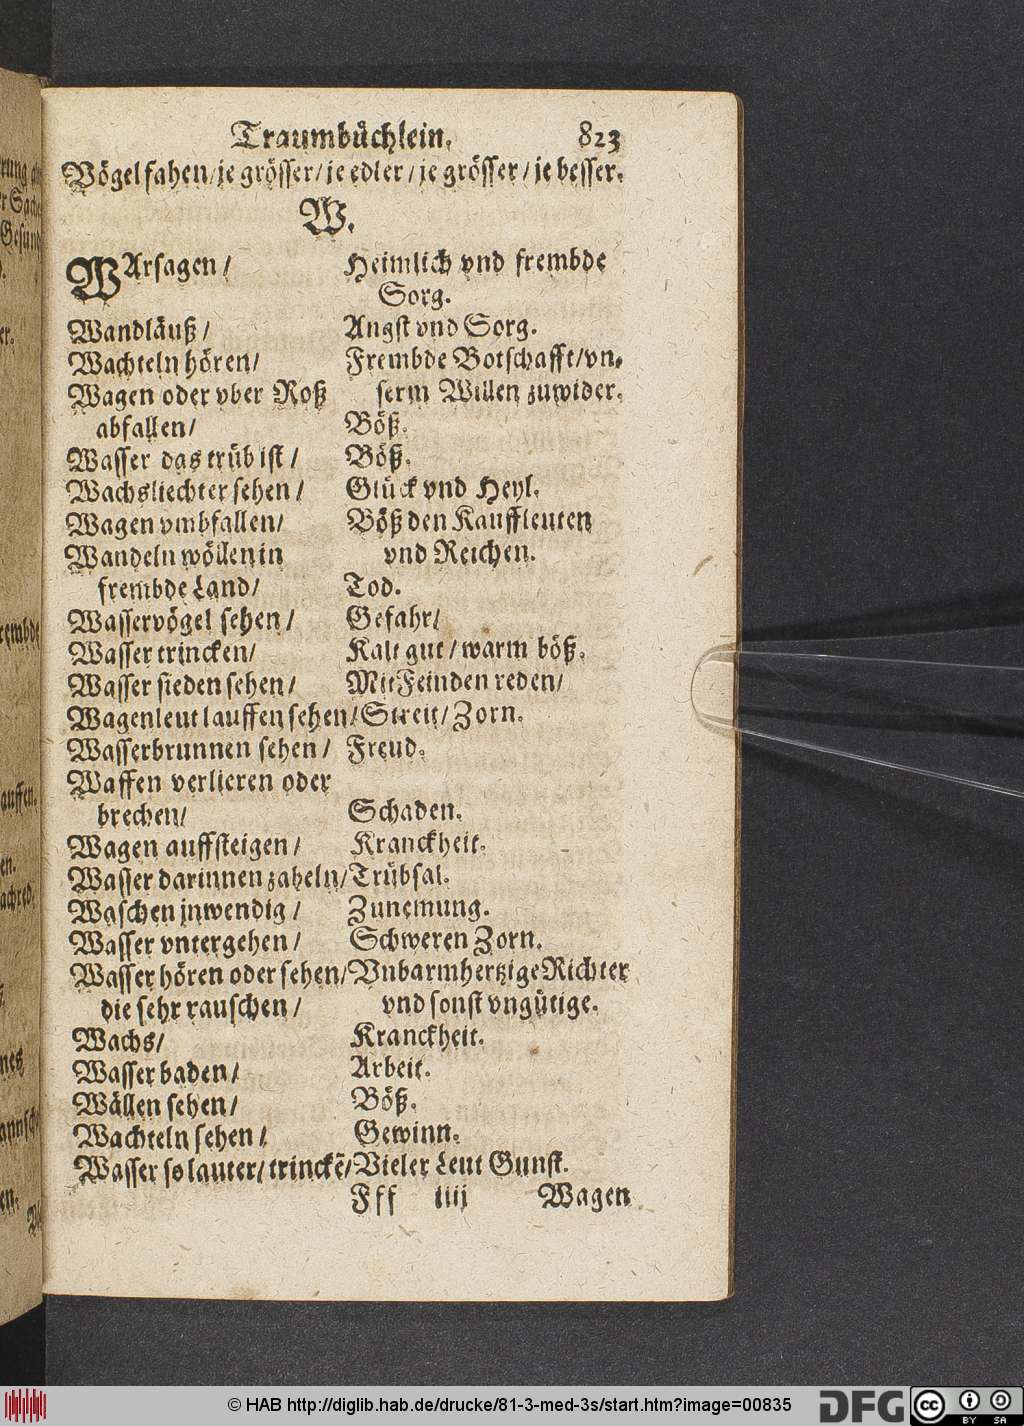 Traumbüchlein. 823
Vögel fahen/je grösser/je edler/je grösser/je besser.
W.
WArsagen/ Heimlich vnd frembde
Sorg.
Wandläuß/ Angst vnd Sorg.
Wachteln hören/ Frembde Botschafft/vn-
Wagen oder vber Roß serm Willen zuwider.
abfallen/ Böß.
Wasser das trüb ist/ Böß.
Wachsliechter sehen/ Glück vnd Heyl.
Wagen vmbfallen/ Böß den Kauffleuten
Wandeln wöllen in vnd Reichen.
frembde Land/ Tod.
Wasservögel sehen/ Gefahr/
Wasser trincken/ Kalt gut/warm böß.
Wasser sieden sehen/ Mit Feinden reden/
Wagenleut lauffen sehen/Streit/Zorn.
Wasserbrunnen sehen/ Freud.
Waffen verlieren oder
brechen/ Schaden.
Wagen auffsteigen/ Kranckheit.
Wasser darinnen zabeln/Trübsal.
Waschen jnwendig/ Zunemung.
Wasser vntergehen/ Schweren Zorn.
Wasser hören oder sehen/Vnbarmhertzige Richter
die sehr rauschen/ vnd sonst vngütige.
Wachs/ Kranckheit.
Wasser baden/ Arbeit.
Wällen sehen/ Böß.
Wachteln sehen/ Gewinn.
Wasser so lauter/trinckẽ/Vieler Leut Gunst.
Fff iiij Wagen
© HAB http://diglib.hab.de/drucke/81-3-med-3s/start.htm?image=00835
DFG
cc
BY SA